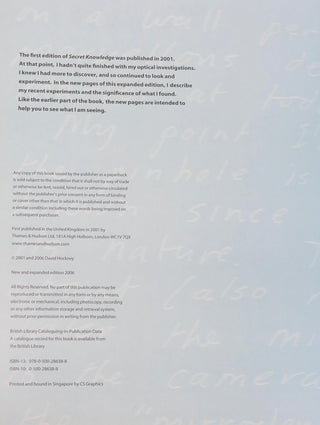 The first edition of Secret Knowledge was published in 2001.
At that point, I hadn't quite finished with my optical investigations.
I knew I had more to discover, and so continued to look and
experiment. In the new pages of this expanded edition, I describe
my recent experiments and the significance of what I found.
Like the earlier part of the book, the new pages are intended to
help you to see what I am seeing.
Any copy of this book issued by the publisher as a paperback
is sold subject to the condition that it shall not by way of trade
or otherwise be lent, resold, hired out or otherwise circulated
without the publisher's prior consent in any form of binding
or cover other than that in which it is published and without
a similar condition including these words being imposed on
a subsequent purchaser.
First published in the United Kingdom in 2001 by
Thames & Hudson Ltd, 181A High Holborn, London WC1V 7QX
www.thamesandhudson.com
© 2001 and 2006 David Hockney
New and expanded edition 2006
All Rights Reserved. No part of this publication may be
reproduced or transmitted in any form or by any means,
electronic or mechanical, including photocopy, recording
or any other information storage and retrieval system,
without prior permission in writing from the publisher.
British Library Cataloguing-in-Publication Data
A catalogue record for this book is available from
the British Library
ISBN-13: 978-0-500-28638-8
ISBN-10: 0-500-28638-8
Printed and bound in Singapore by CS Graphics
nature
also
the camera